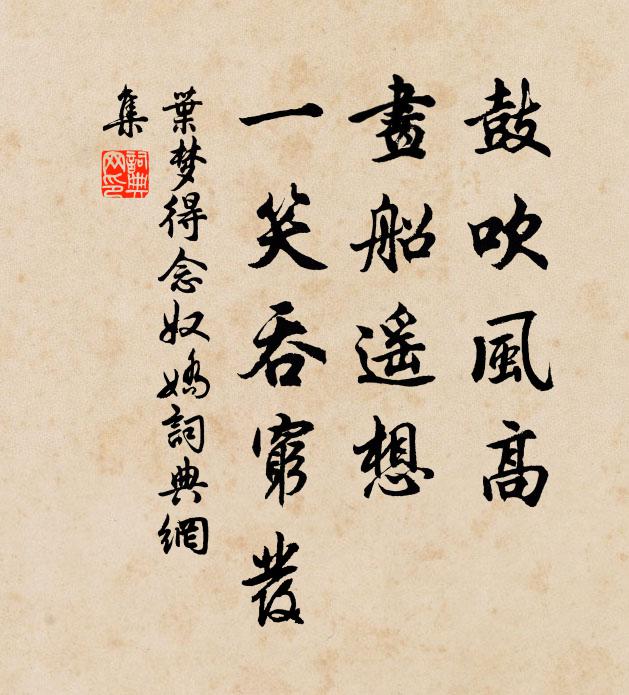 鼓吹風高
畫船遙想
一笑吞窮發
葉梦得念奴嬌詞典網
集
詞典
网印